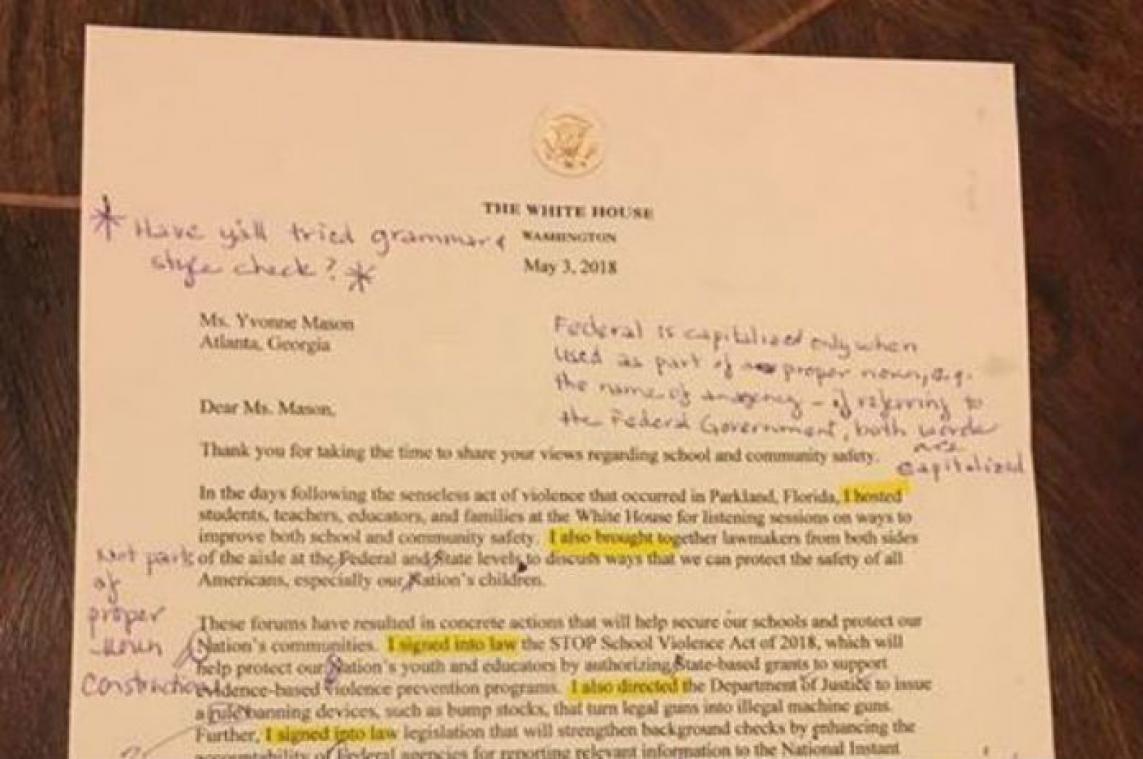 THE WHITE HOUSE
* Have y'all tried grammar &
WASHINGTON
style check? *
May 3, 2018
Ms. Yvonne Mason
Atlanta, Georgia
Federal is capitalized only when
used as part of proper noun, e.g.
the name of an agency - if referring to
the Federal Government, both words
are
capitalized
Dear Ms. Mason,
Thank you for taking the time to share your views regarding school and community safety.
In the days following the senseless act of violence that occurred in Parkland, Florida, I hosted
students, teachers, educators, and families at the White House for listening sessions on ways to
improve both school and community safety. I also brought together lawmakers from both sides
of the aisle at the Federal and State levels to discuss ways that we can protect the safety of all
Americans, especially our Nation's children.
Not part
of
proper
noun
construction
These forums have resulted in concrete actions that will help secure our schools and protect our
Nation's communities. I signed into law the STOP School Violence Act of 2018, which will
help protect our Nation's youth and educators by authorizing State-based grants to support
evidence-based violence prevention programs. I also directed the Department of Justice to issue
a rule banning devices, such as bump stocks, that turn legal guns into illegal machine guns.
Further, I signed into law legislation that will strengthen background checks by enhancing the
accountability of Federal agencies for reporting relevant information to the National Instant